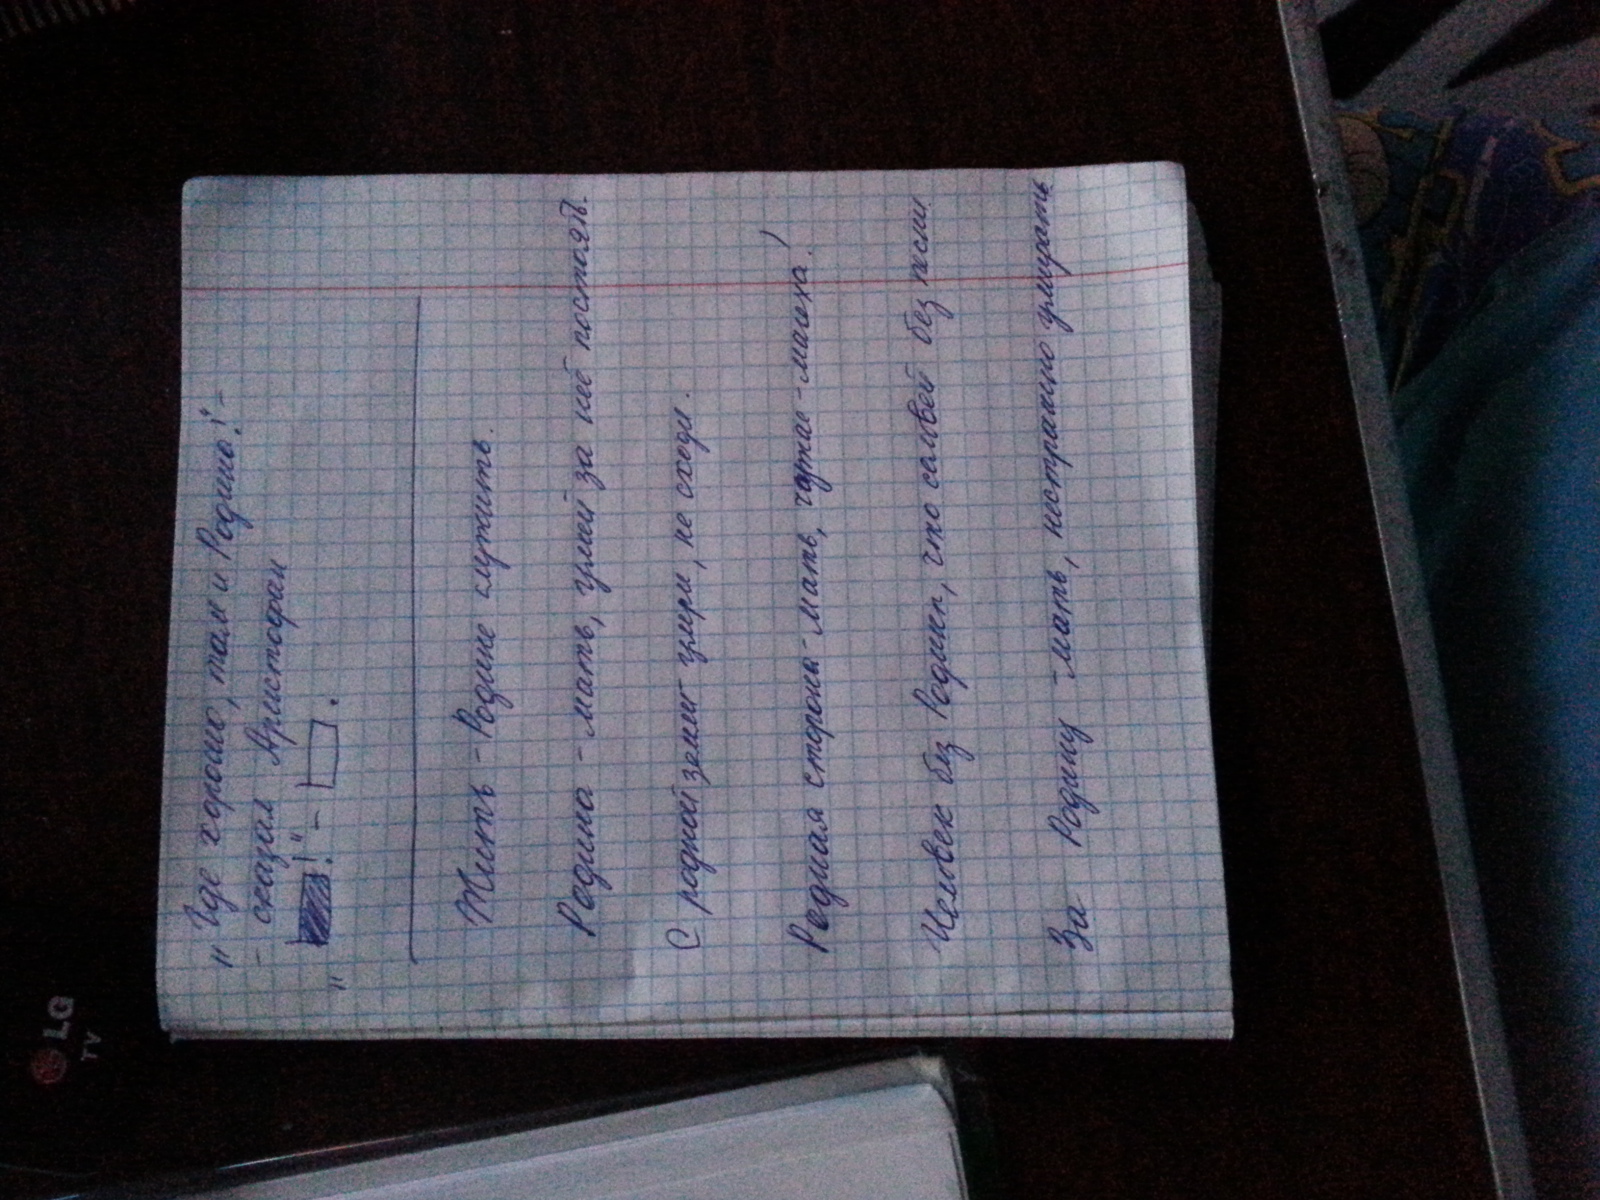 "Где хорошо, там и Родина!" -
- сказал Аристофан
" !" - .
Жить - Родине служить.
Родина - мать, умей за неё постоять.
С родной земли умри, не сходи.
Родная сторона - мать, чужая - мачеха!
Человек без Родины, что соловей без песни
За Родину - мать, нестрашно умирать
LG
TV